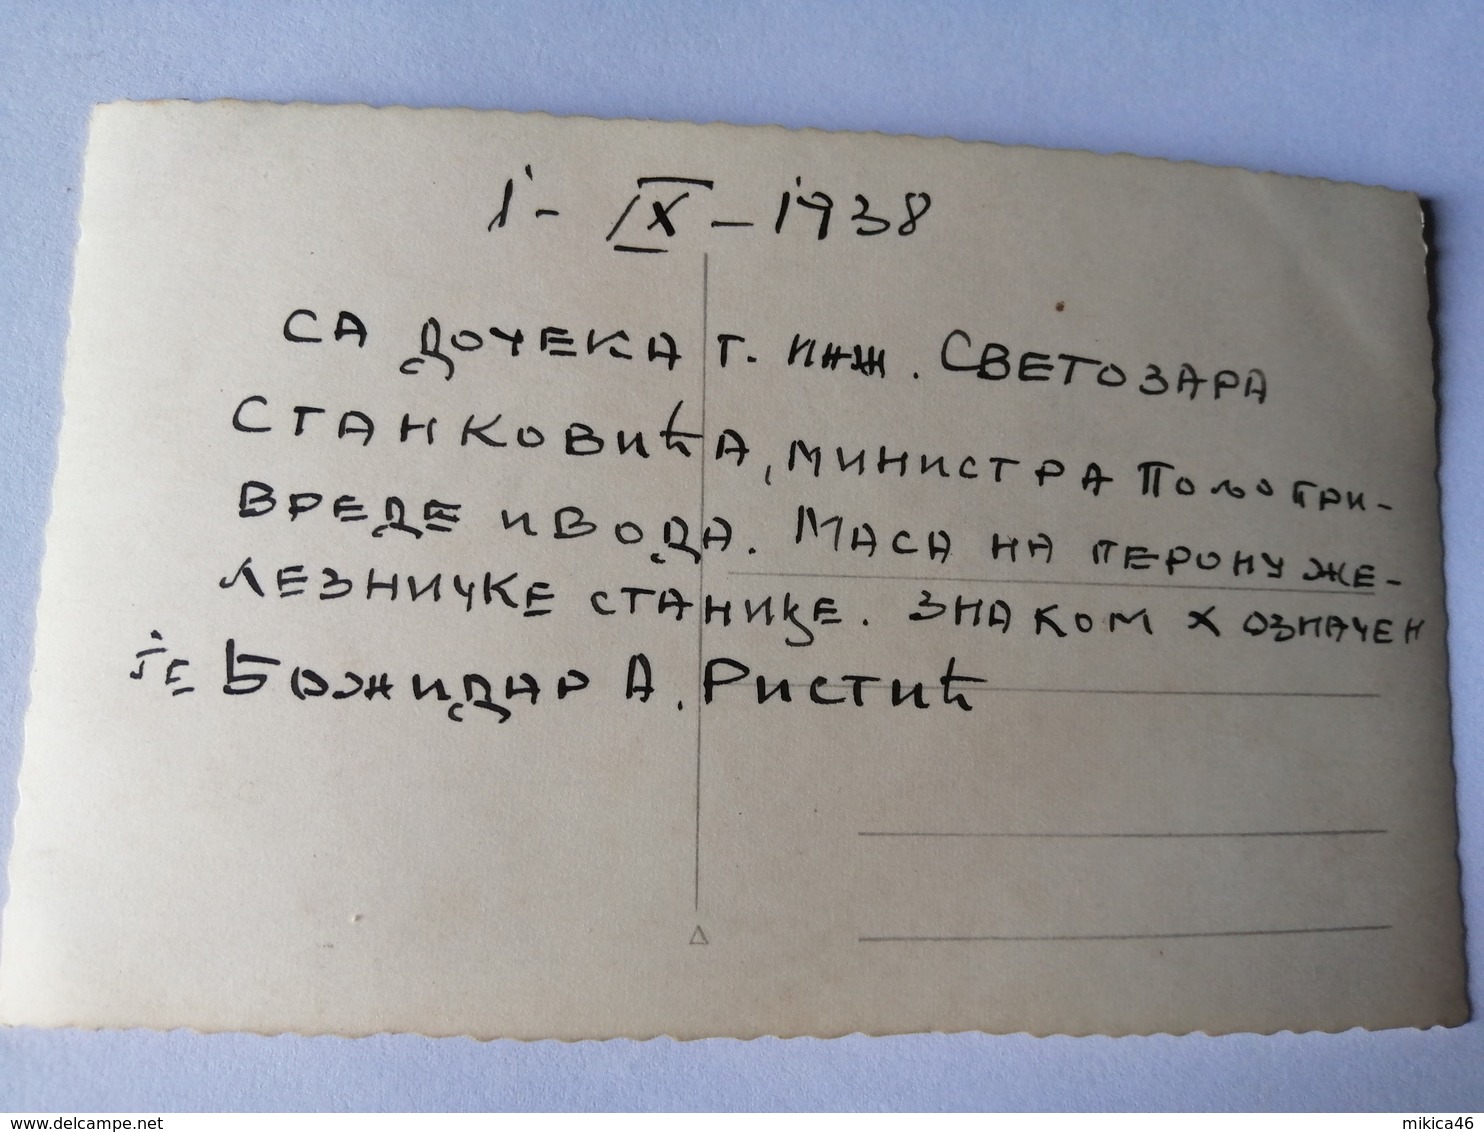 1 - IX - 1938
СА ДОЧЕКА Г. ИНЖ. СВЕТОЗАРА
СТАНКОВИЋА, МИНИСТРА ПОЉОПРИ-
ВРЕДЕ И ВОДА. МАСА НА ПЕРОНУ ЖЕ-
ЛЕЗНИЧКЕ СТАНИЦЕ. ЗНАКОМ X ОЗНАЧЕН
ЈЕ БОЖИДАР А. РИСТИЋ
delcampe.net
mikica46